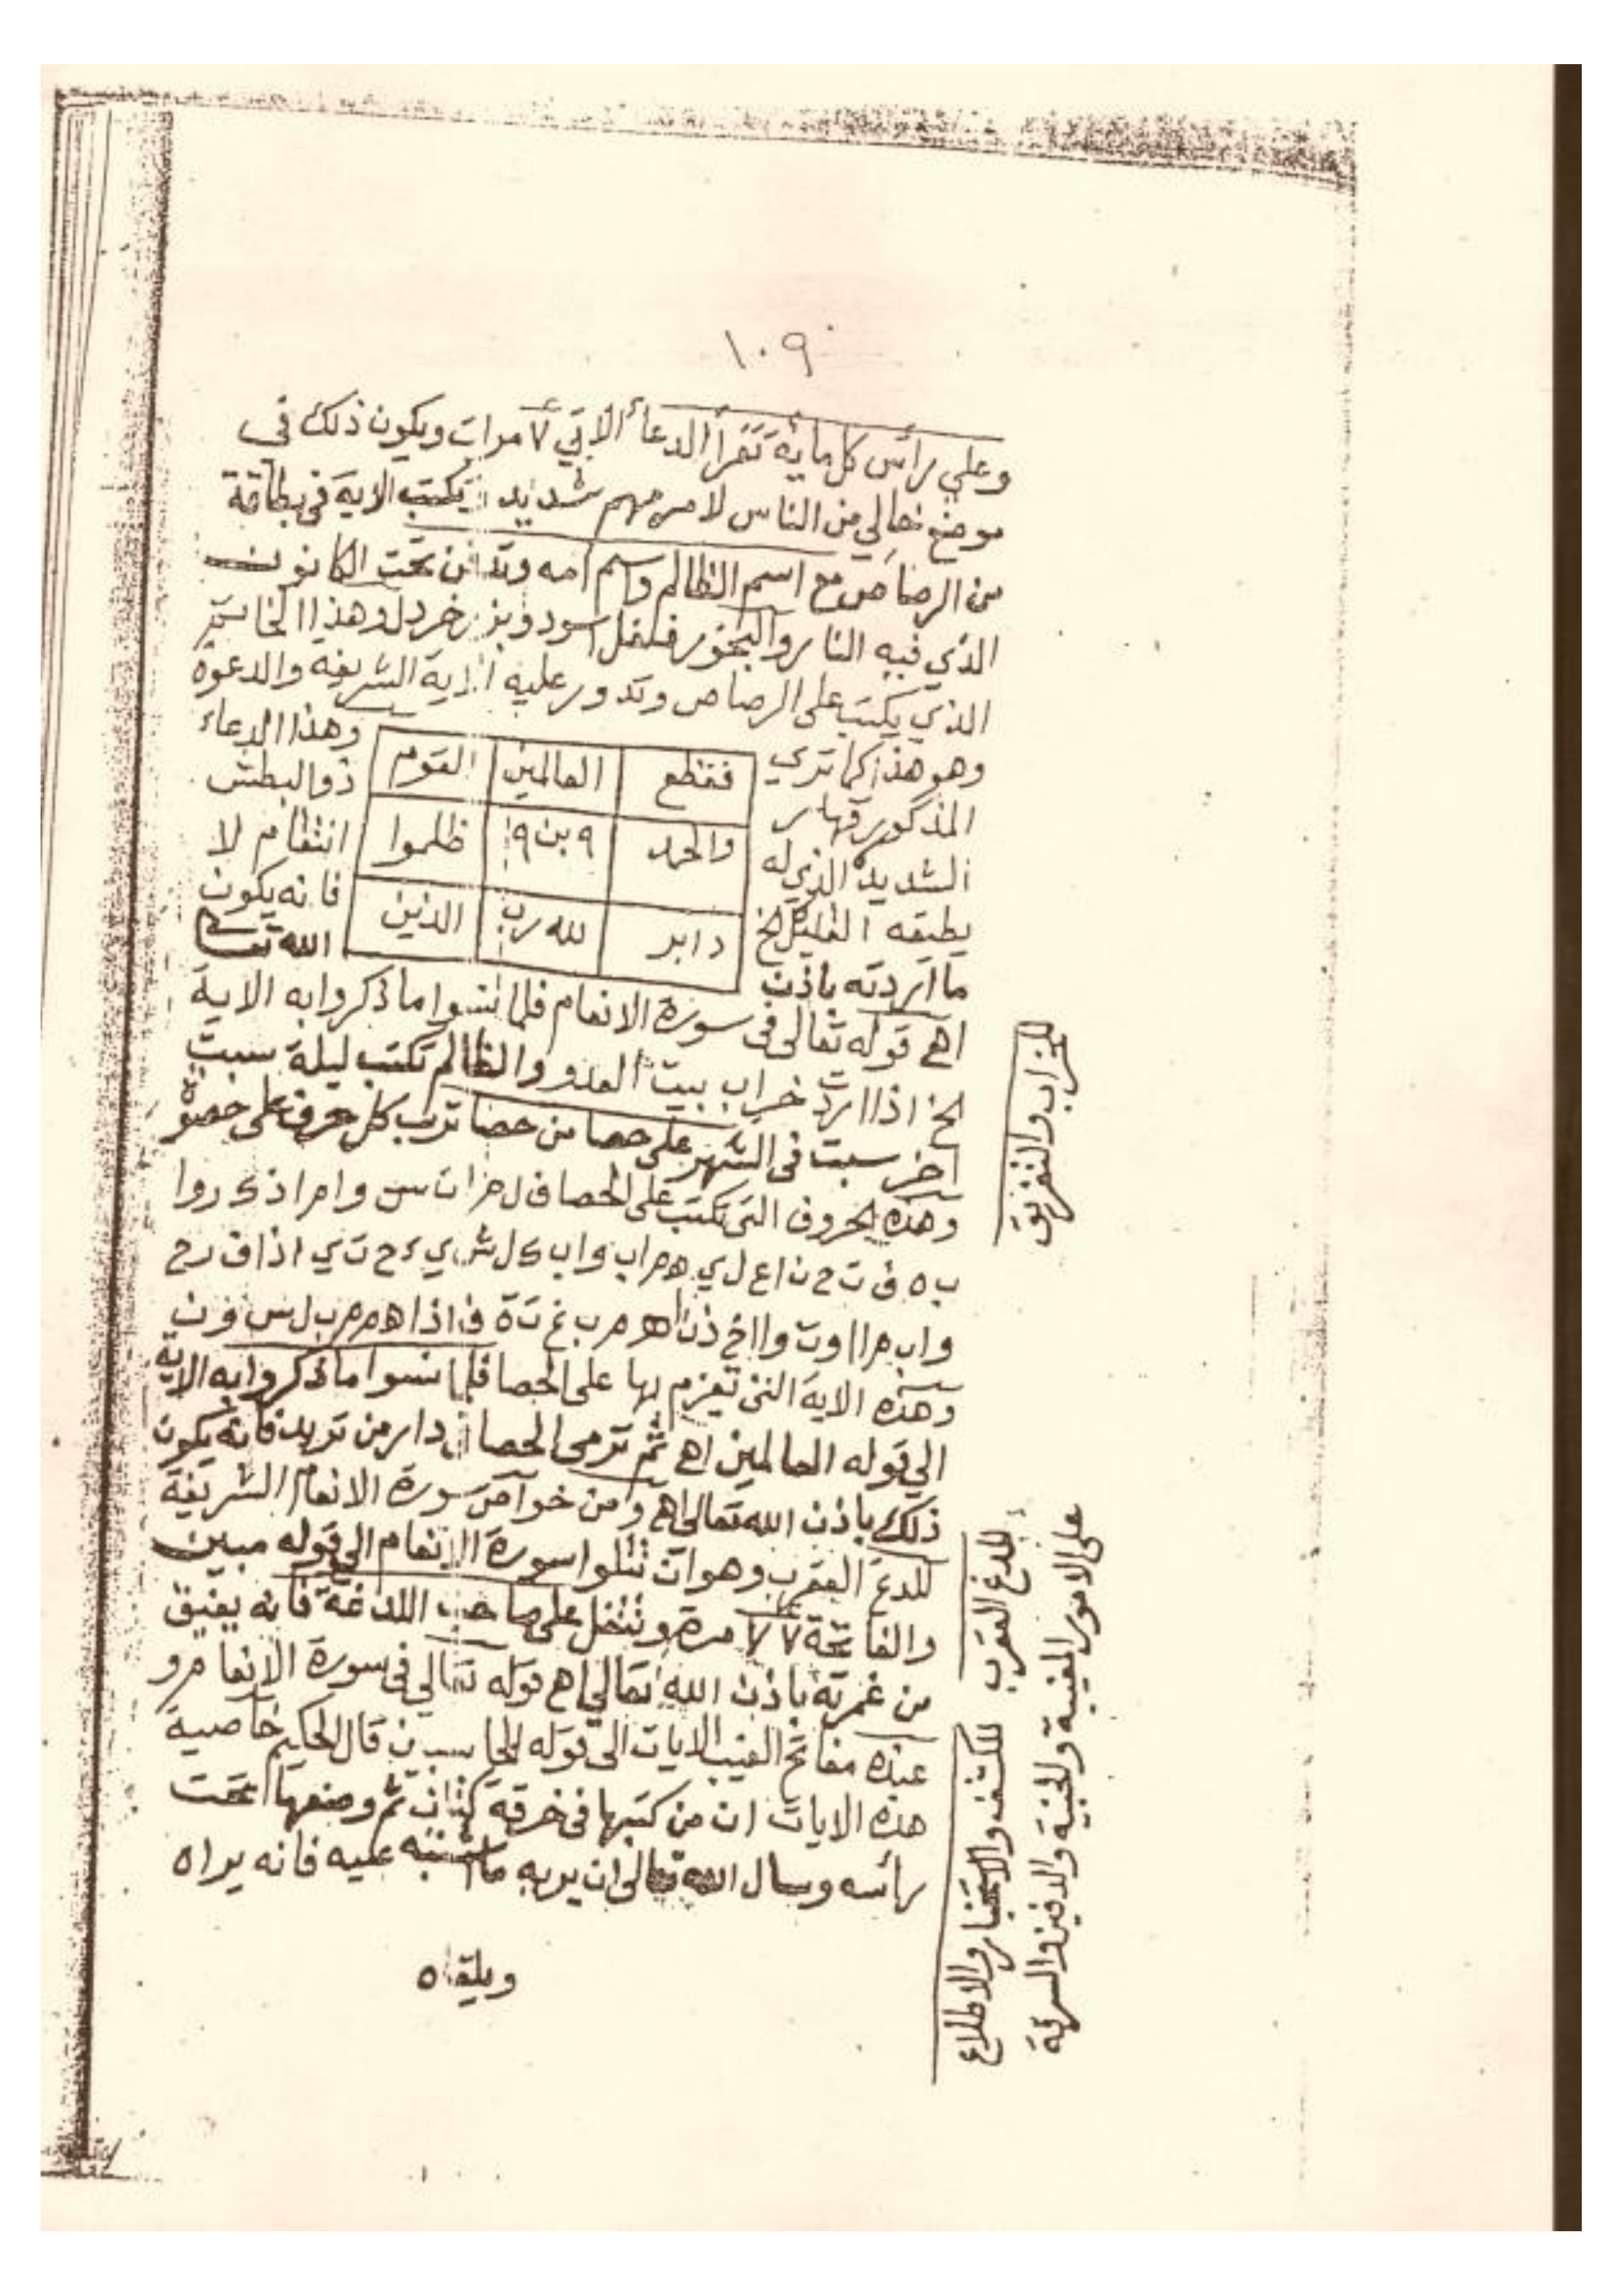 ١٠٩
وعلي رأس كل ماية تقرأ الدعاء الآتي ٧ مرات ويكون ذلك في
موضع خالي من الناس لامر مهم شديد يكتب الاية في بطاقة
من الرصاص مع اسم الظالم واسم امه وتدفن تحت الكانون
الذي فيه النار والبخور فلفل اسود وبزر خردل وهذا الخاتم
الذي يكتب على الرصاص وتدور عليه الاية الشريفة والدعوة
وهو هذا كما تري وهذا الدعاء
فقطع العالمين القوم
المذكور قهار ذو البطش
والحمد ٩ بن ٩ ظلموا
الشديد الذي له انتقام لا
يطيقه الخ فانه يكون
دابر لله رب الذين
ما اردته باذن الله تعالى
اهـ قوله تعالى في سورة الانعام فلما نسوا ما ذكروا به الاية
الخ اذا اردت خراب بيت العدو والظالم تكتب ليلة سبت
اخر سبت في الشهر على حصا من حصا ترب كل حرف على حصوة
وهذه الحروف التي تكتب على الحصا ف ل م ا ن س و ا م ا ذ ك ر و ا
ب ه ف ت ح ن ا ع ل ي هم ا ب و ا ب ك ل ش ي ء ح ت ي ا ذ ا ف ر ح
و ا ب م ا ا و ت و ا ا خ ذ ن ا هم ب غ ت ة ف ا ذ ا هم م ب ل س و ن
وهذه الاية التي تعزم بها على الحصا فلما نسوا ما ذكروا به الاية
الي قوله العالمين اهـ ثم ترمى الحصا في دار من تريد فانه يكون
ذلك باذن الله تعالى اهـ ومن خواص سورة الانعام الشريفة
للدغ العقرب وهو ان تتلوا سورة الانعام الي قوله مبين
والفاتحة ٧٧ مرة وتتفل على صاحب اللدغة فانه يفيق
من غمرته باذن الله تعالى اهـ قوله تعالي في سورة الانعام و
عنده مفاتح الغيب الايات الى قوله الحاسبين قال الحكيم خاصية
هذه الايات ان من كتبها في خرقة كتان ثم وضعها تحت
رأسه وسال الله تعالى ان يريه ما اشتبه عليه فانه يراه
ويلقاه
للخراب والتفريق
للدغ العقرب
للكشف والاطلاع
على الامور المغيبة والخبية والدفين والسرقة